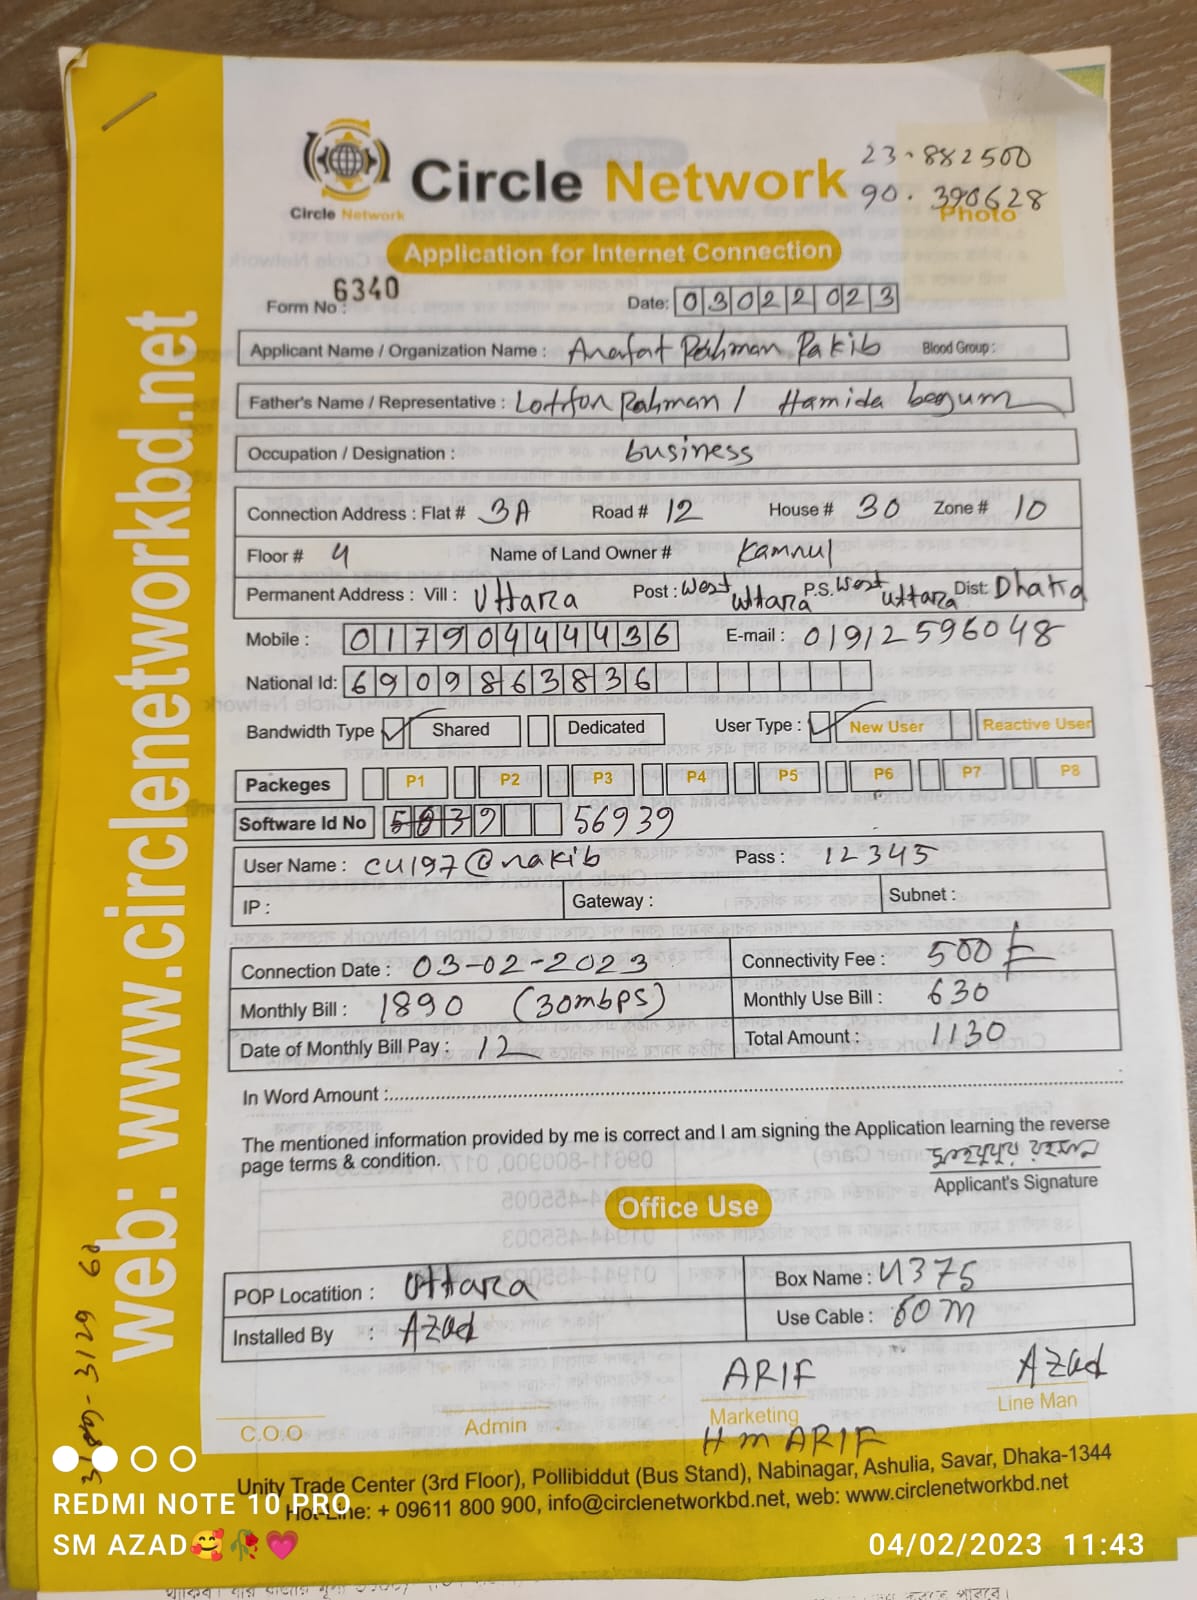 web: www.circlenetworkbd.net
Circle Network
Circle Network
23.882500
90.390628
Photo
Application for Internet Connection
Form No : 6340
Date: 03022023
Applicant Name / Organization Name : Arafat Rahman Rakib Blood Group :
Father's Name / Representative : Lotfor Rahman / Hamida begum
Occupation / Designation : business
Connection Address : Flat # 3A Road # 12 House # 30 Zone # 10
Floor # 4 Name of Land Owner # Kamrul
Permanent Address : Vill : Uttara Post : West uttara P.S. West uttara Dist: Dhaka
Mobile : 01790444436 E-mail : 01912596048
National Id: 6909863836
Bandwidth Type Shared Dedicated User Type : New User Reactive User
Packeges P1 P2 P3 P4 P5 P6 P7 P8
Software Id No 56939
User Name : CU197@rakib Pass : 12345
IP : Gateway : Subnet :
Connection Date : 03-02-2023 Connectivity Fee : 500
Monthly Bill : 1890 (30mbps) Monthly Use Bill : 630
Date of Monthly Bill Pay : 12 Total Amount : 1130
In Word Amount :
The mentioned information provided by me is correct and I am signing the Application learning the reverse
page terms & condition.
Applicant's Signature
Office Use
POP Locatition : Uttara Box Name : U375
Installed By : Azad Use Cable : 60m
ARIF Azad
C.O.O Admin Marketing Line Man
H m ARIF
Unity Trade Center (3rd Floor), Pollibiddut (Bus Stand), Nabinagar, Ashulia, Savar, Dhaka-1344
Hot-Line: + 09611 800 900, info@circlenetworkbd.net, web: www.circlenetworkbd.net
REDMI NOTE 10 PRO
SM AZAD🥰🥀💗
04/02/2023 11:43